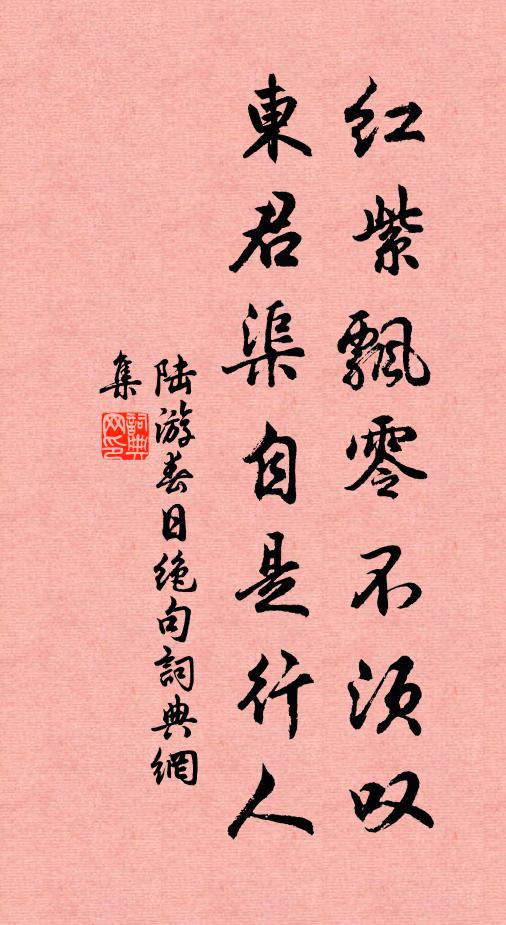 红紫飘零不须叹
東君渠自是行人
陆游春日绝句詞典網
集
詞典网印